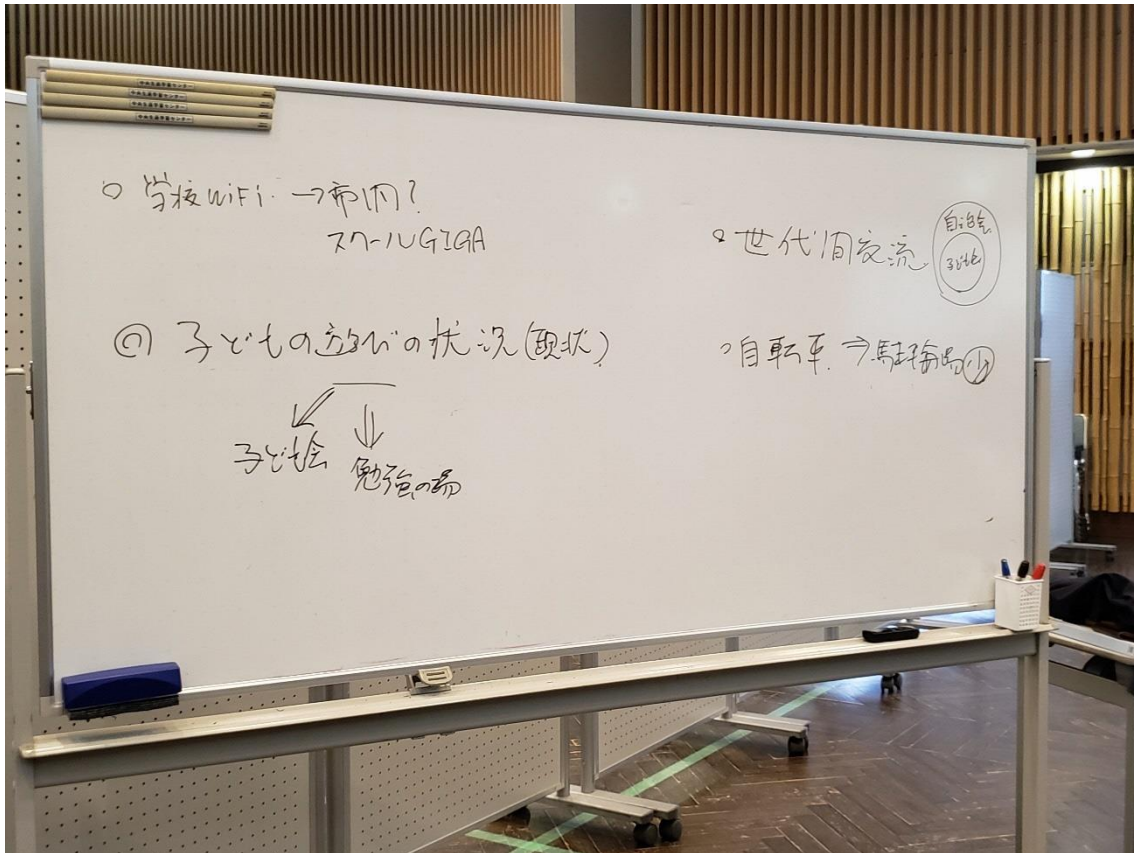 中央生涯学習センター
中央生涯学習センター
中央生涯学習センター
中央生涯学習センター
○ 学校WiFi →市内?
スクールGIGA
◎ 子どもの遊びの状況(現状)
子ども会
勉強の場
○世代間交流
自治会
子ども会
○自転車 ⇒駐輪場 少